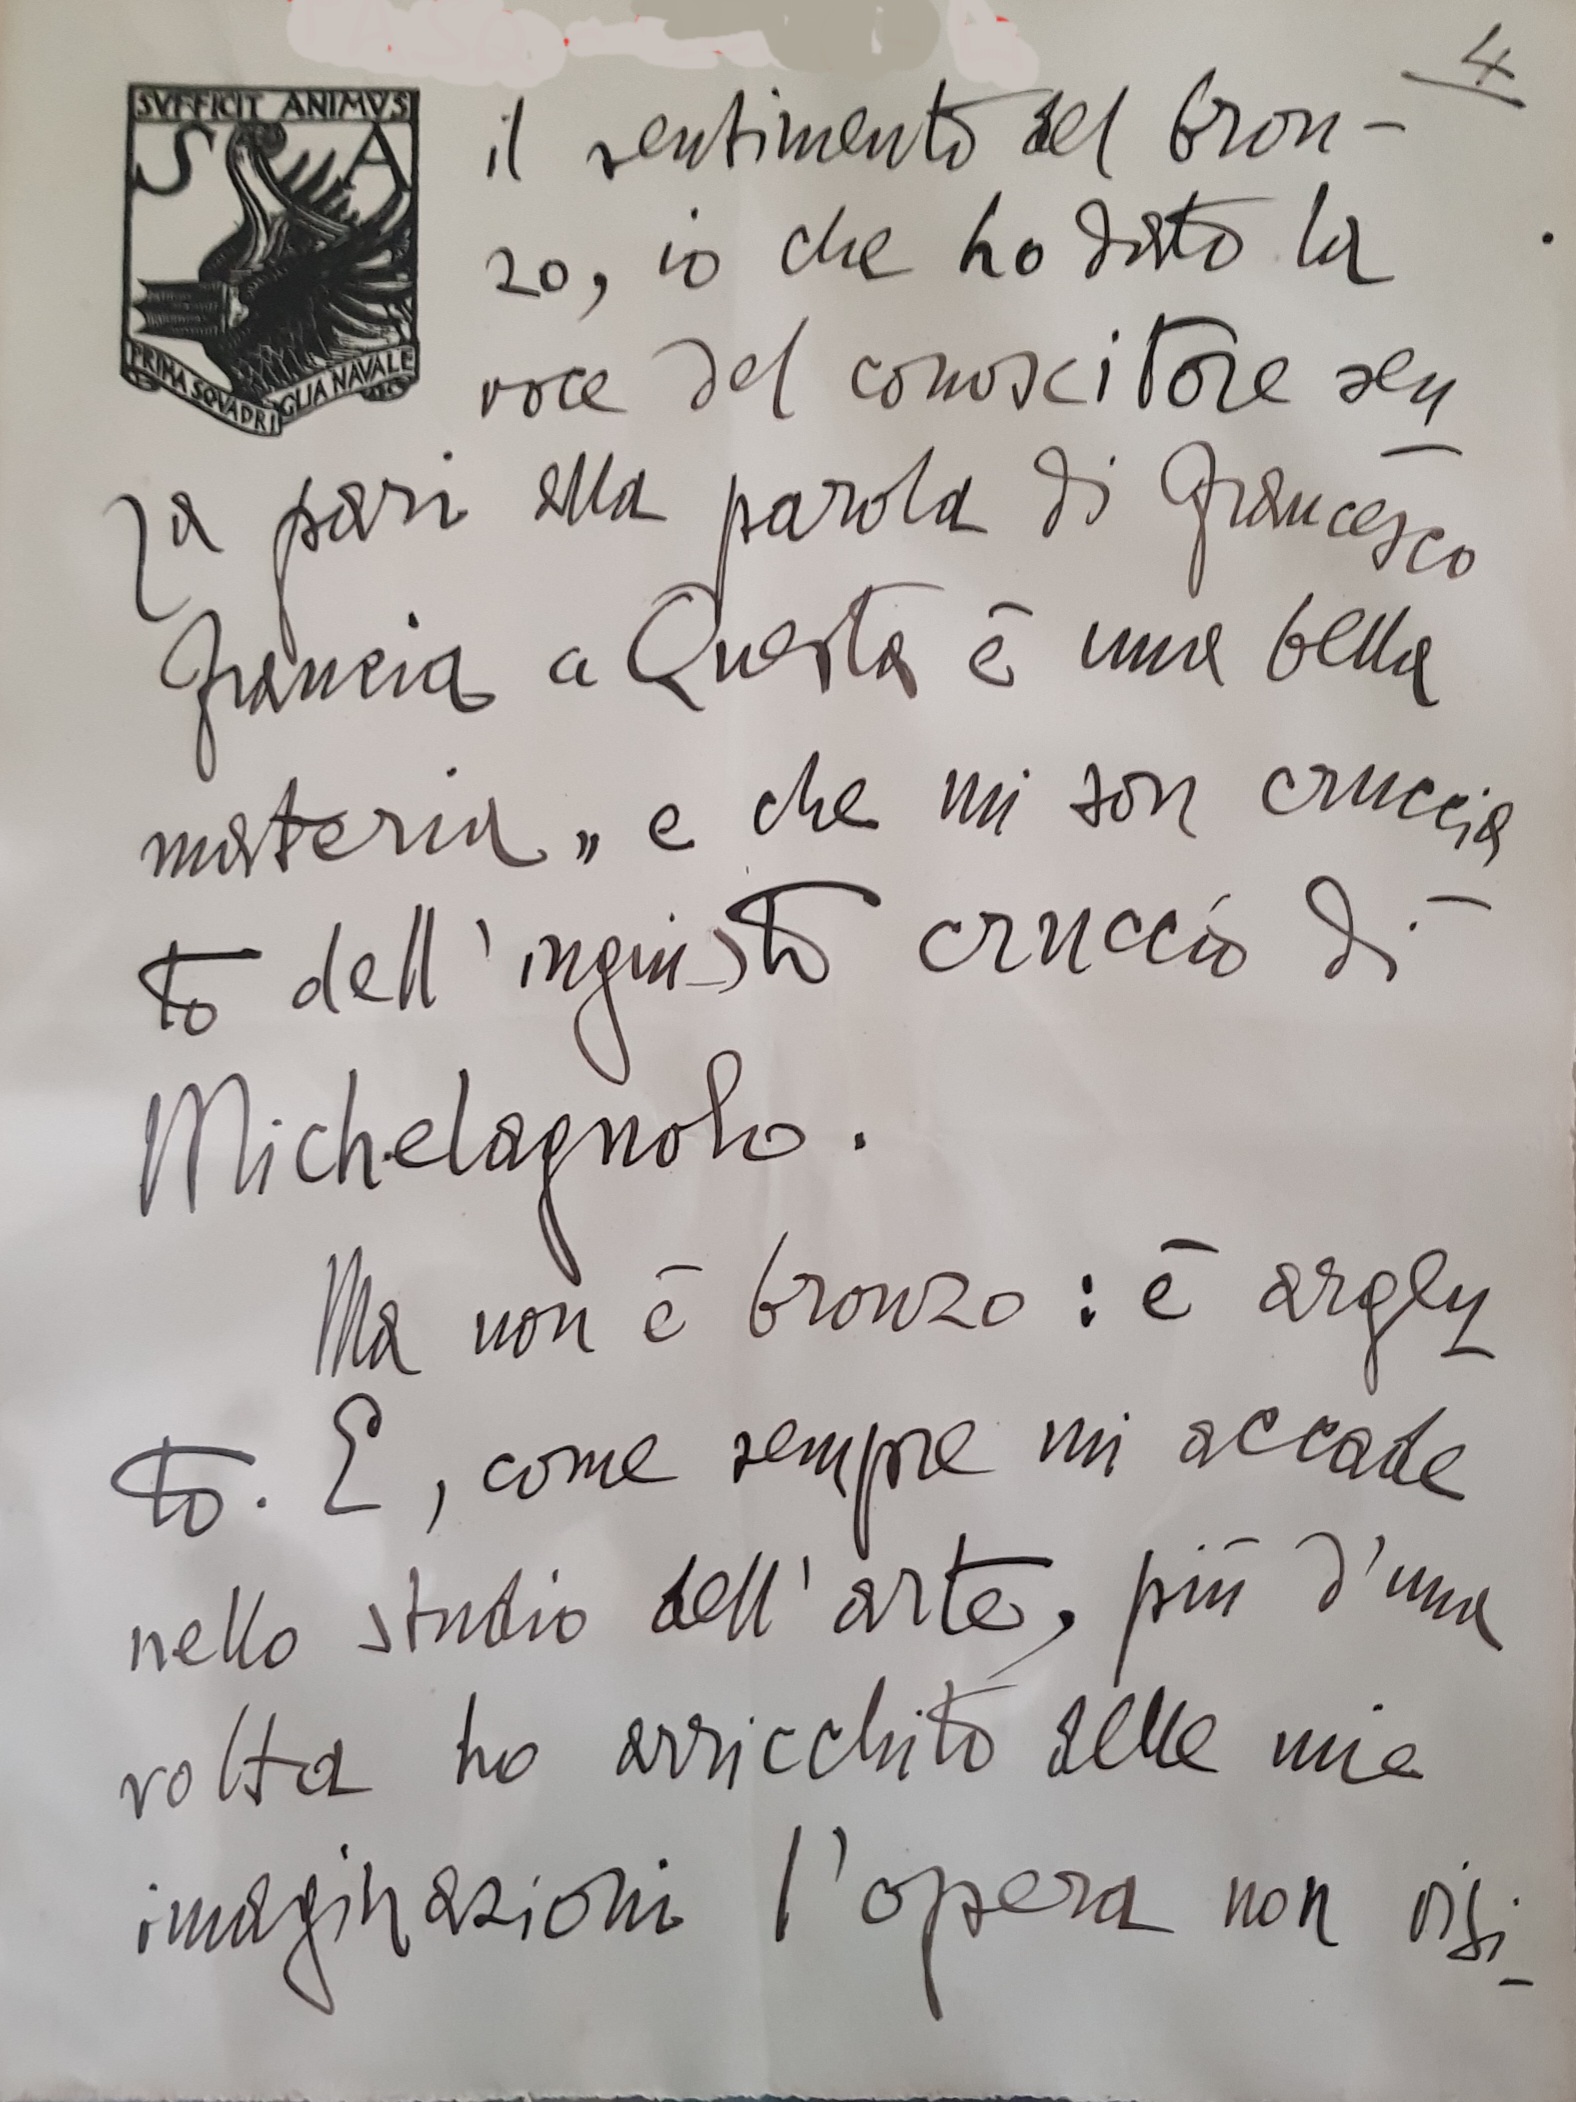 4
SVFFICIT ANIMVS
S A
PRIMA SQVADRIGLIA NAVALE
il sentimento del bron-
zo, io che ho dato la
voce del conoscitore sen-
za pari alla parola di Francesco
Francia « Questa è una bella
materia „ e che mi son cruccia-
to dell'ingiusto cruccio di
Michelagnolo.
Ma non è bronzo : è argen-
to. E, come sempre mi accade
nello studio dell'arte, più d'una
volta ho arricchito delle mie
imaginazioni l'opera non visi-